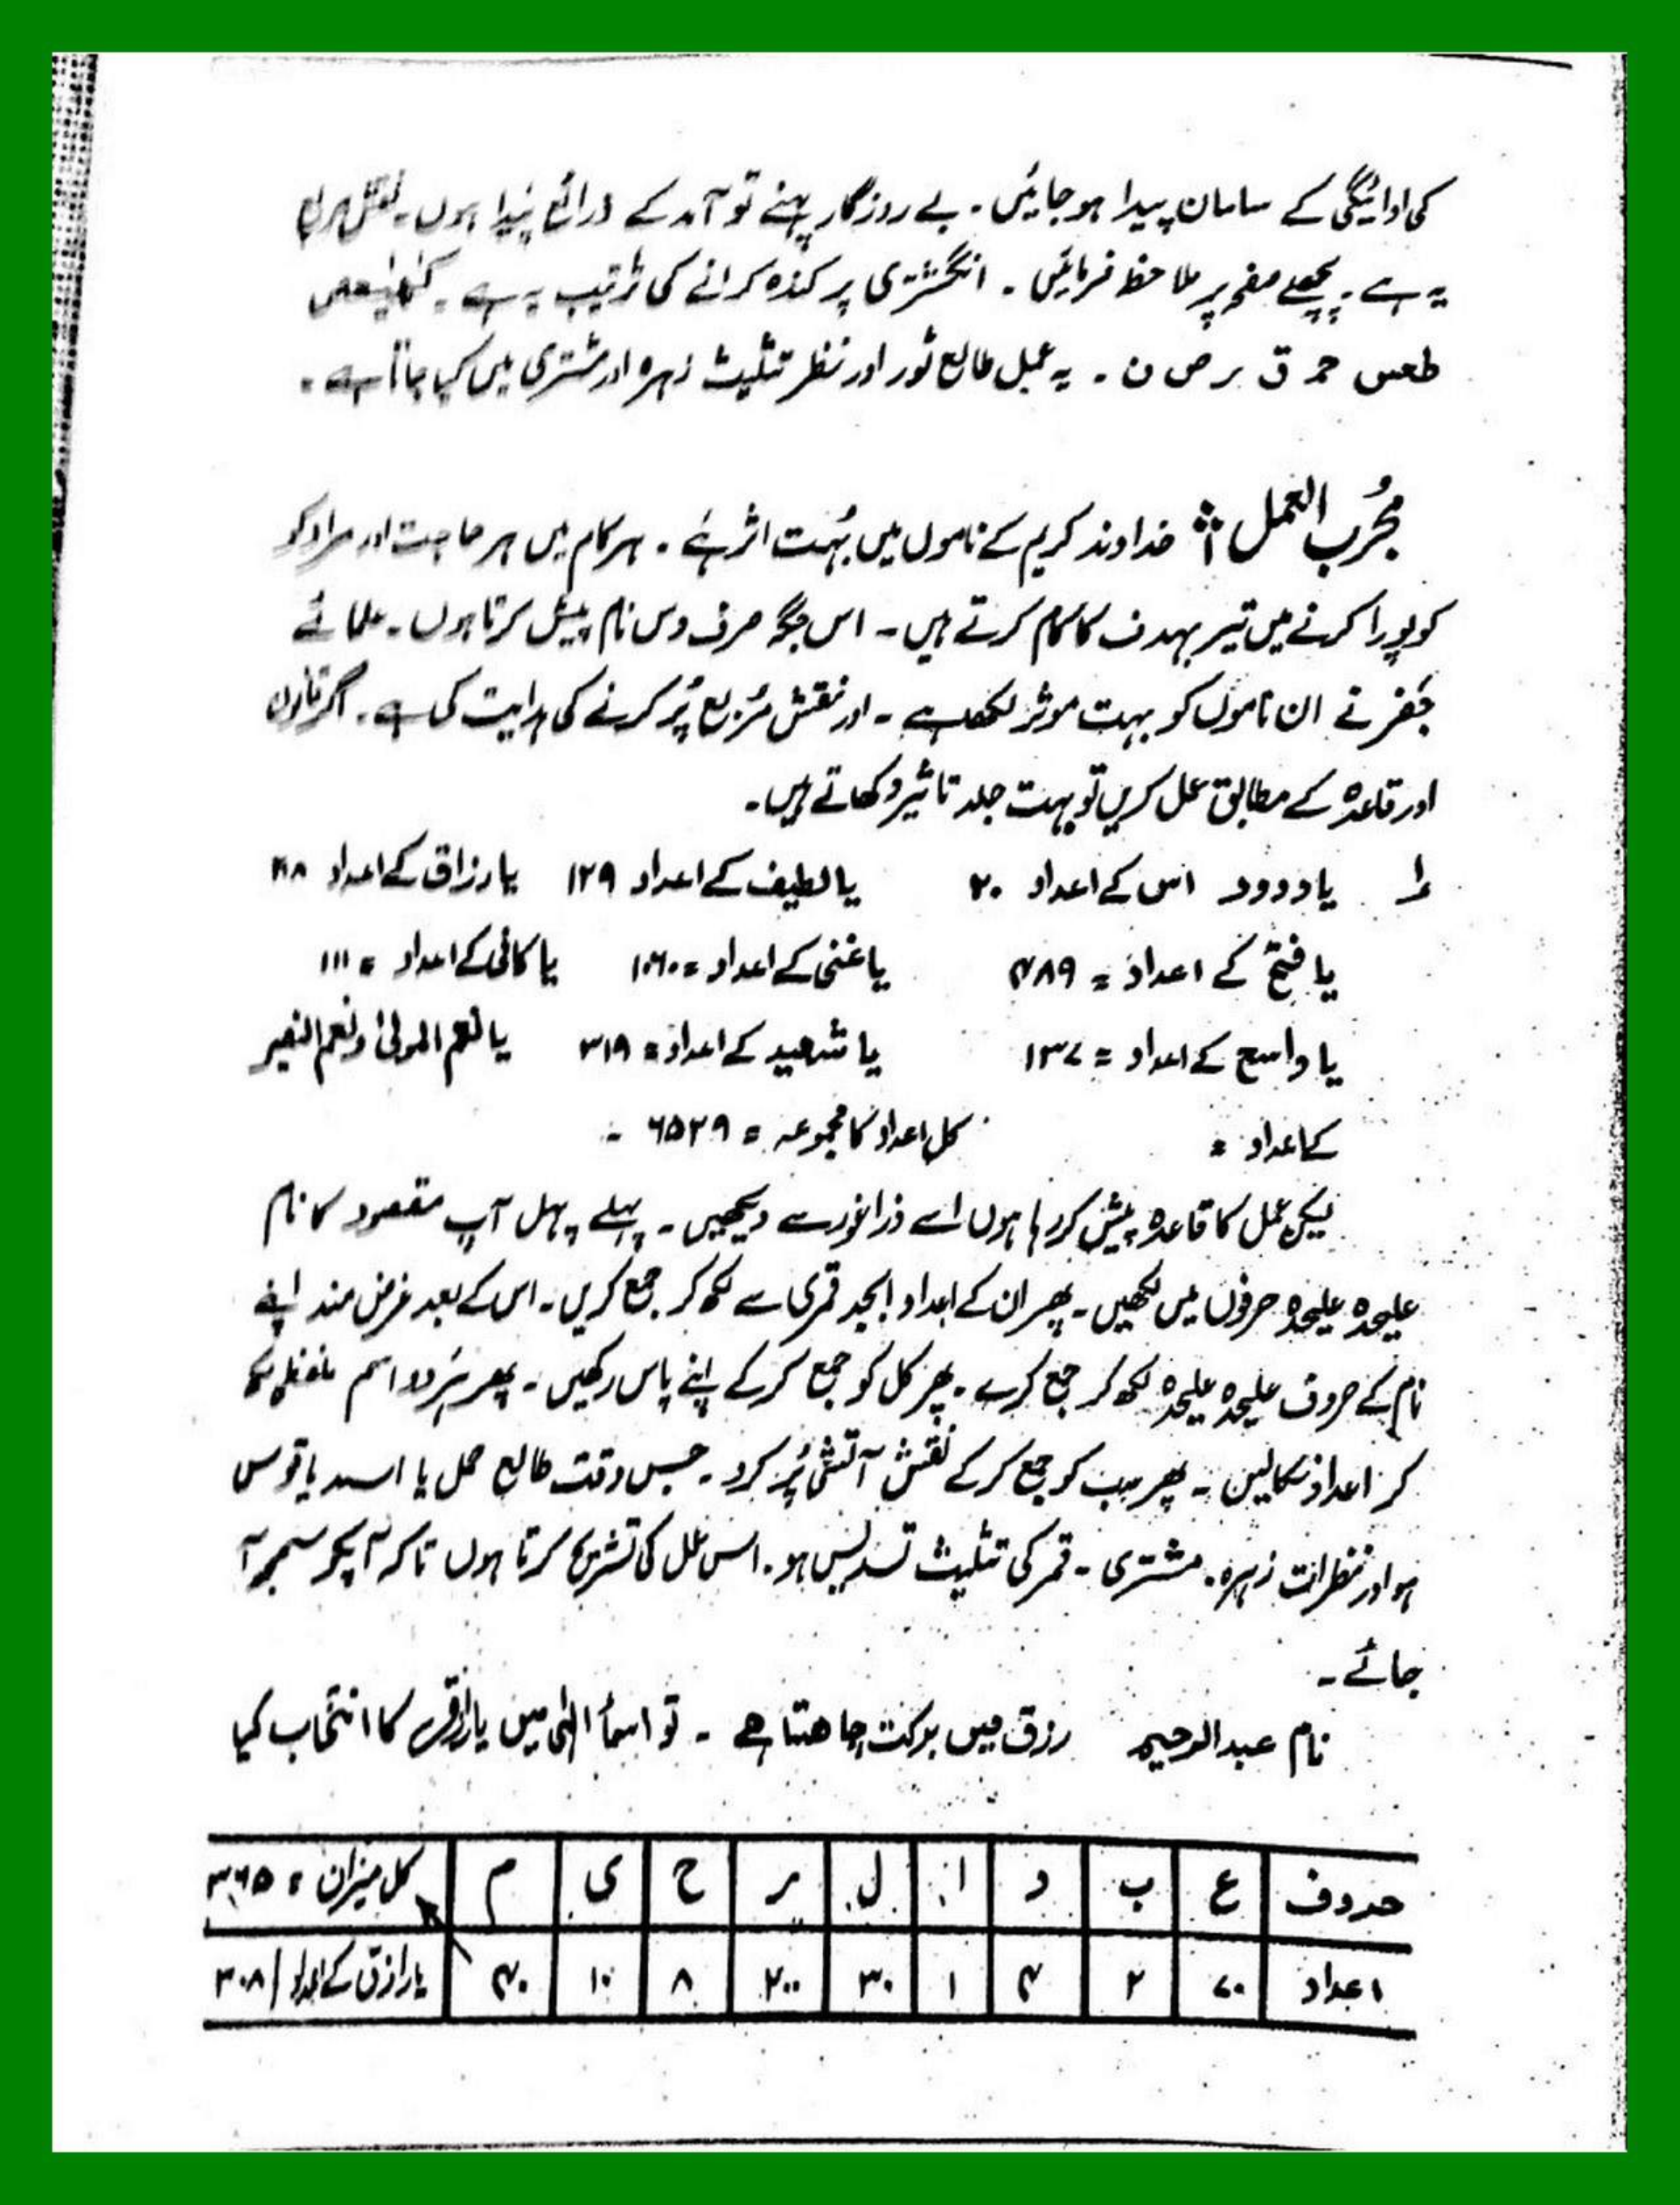 کی ادائیگی کے سامان پیدا ہو جائیں ۔ بے روزگار پہنے تو آمد کے ذرائع پیدا ہوں ۔ نقش
یہ ہے ۔ پچھلے صفحہ پر ملاحظہ فرمائیں ۔ انگشتری پر کندہ کرانے کی ترتیب یہ ہے ۔ کٰھٰیٰعص
طٰعس حمٓ ق ر ص ن ۔ یہ عمل طالع ثور اور نظر تثلیث زہرہ اور مشتری میں کیا جاتا ہے ۔
مُجرب العمل خداوند کریم کے ناموں میں بُہت اثر ہَے ۔ ہر کام میں ہر حاجت اور مراد کو
کو پورا کرنے میں تیر بہدف کا کام کرتے ہیں ۔ اس جگہ صرف دس نام پیش کرتا ہوں ۔ علمائے
جَفر نے ان ناموں کو بہت موثر لکھا ہے ۔ اور نقش مُربع پُر کرنے کی ہدایت کی ہے ۔ اگر قانون
اور قاعدہ کے مطابق عمل کریں تو بہت جلد تاثیر دکھاتے ہیں ۔
۱ یا ودود اس کے اعداد ۲۰ یا لطیف کے اعداد ۱۲۹ یا رزاق کے اعداد
یا فتح کے اعداد = ۴۸۹ یا غنی کے اعداد = ۱۰۶۰ یا کافی کے اعداد = ۱۱۱
یا واسع کے اعداد = ۱۳۷ یا شھید کے اعداد = ۳۱۹ یا نعم المولیٰ ونعم النصیر
کے اعداد = کل اعداد کا مجموعہ = ۶۵۲۹ ۔
لیکن عمل کا قاعدہ پیش کر رہا ہوں اسے ذرا غور سے دیکھیں ۔ پہلے پہل آپ مقصود کا نام
علیحدہ علیحدہ حرفوں میں لکھیں ۔ پھر ان کے اعداد ابجد قمری سے لکھ کر جمع کریں ۔ اس کے بعد غرض مند اپنے
نام کے حروف علیحدہ علیحدہ لکھ کر جمع کرے ۔ پھر کل کو جمع کر کے اپنے پاس رکھیں ۔ پھر ہر دو اسم
کر اعداد نکالیں ۔ پھر سب کو جمع کر کے نقش آتشی پُر کرو ۔ جس وقت طالع حمل یا اسد یا قوس
ہو اور نظرات زہرہ ۔ مشتری ۔ قمر کی تثلیث تسدیس ہو ۔ اس عمل کی تشریح کرتا ہوں تاکہ آپکو سمجھ آ
جائے ۔
نام عبدالرحیم رزق میں برکت چاھتا ہے ۔ تو اسمأ الٰہی میں یا رازق کا انتخاب کیا
حروف ع ب د ا ل ر ح ی م کل میزان = ۳۶۵
اعداد ۷۰ ۲ ۴ ۱ ۳۰ ۲۰۰ ۸ ۱۰ ۴۰ یا رازق کے اعداد / ۳۰۸